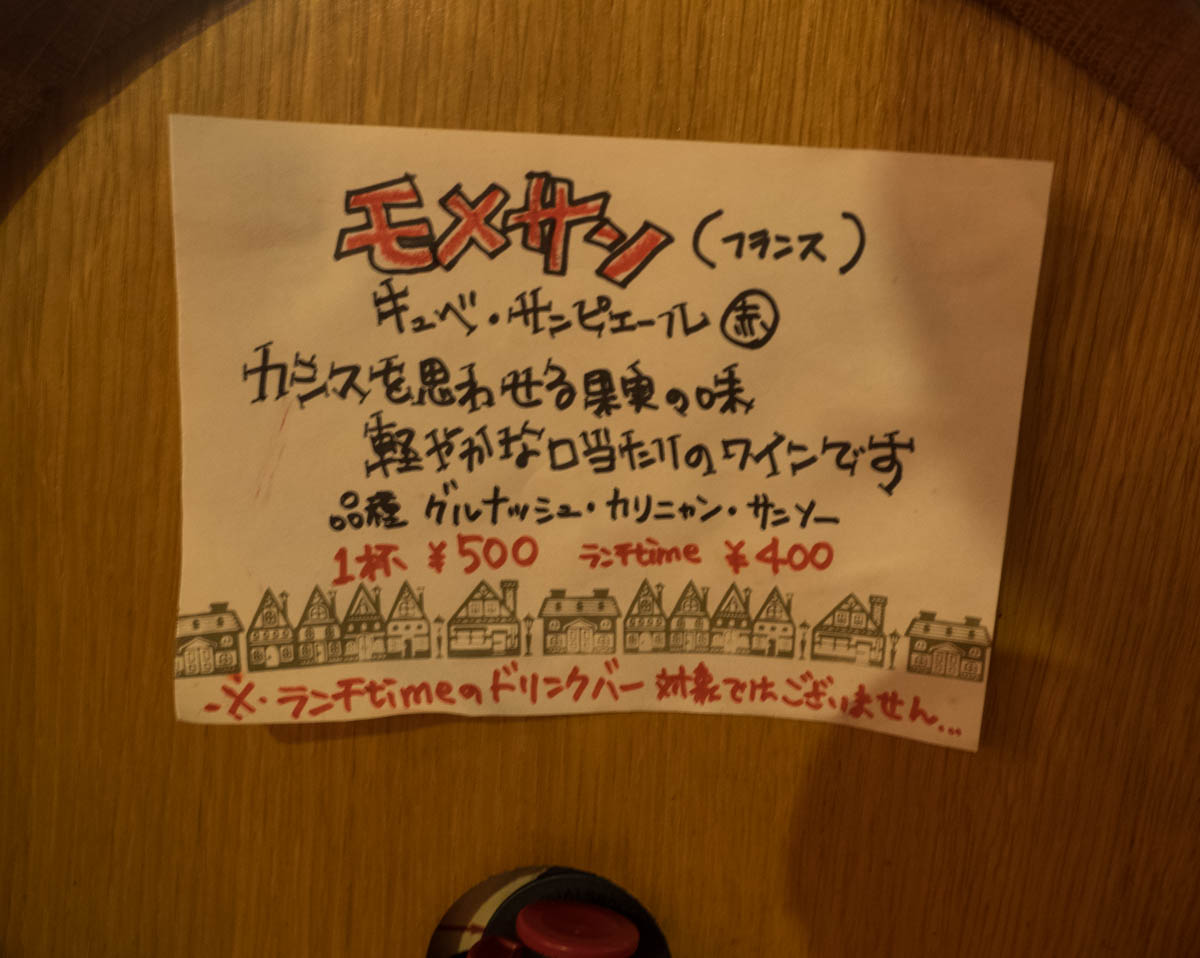 モメサン (フランス)
キュベ・サンピエール 赤
カシスを思わせる果実の味
軽やかな口当たりのワインです
品種 グルナッシュ・カリニャン・サンソー
1杯 ¥500 ランチtime ¥400
※ランチtimeのドリンクバー対象ではございません...